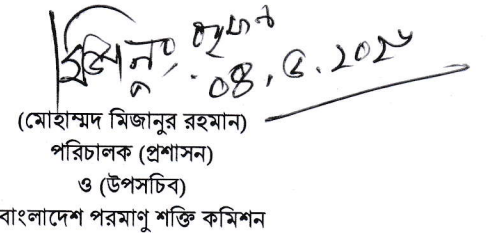 (মোহাম্মদ মিজানুর রহমান)
পরিচালক (প্রশাসন)
ও (উপসচিব)
বাংলাদেশ পরমাণু শক্তি কমিশন